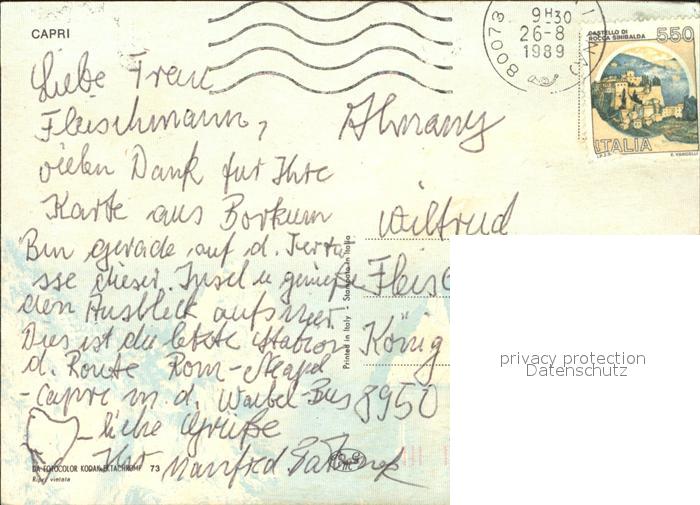 CAPRI
Liebe Frau
Fleischmann,
vielen Dank für Ihre
Karte aus Borkum
Bin gerade auf d. Terra
sse dieser Insel u genieße
den Ausblick aufs Meer
Dies ist die letzte Station
d. Route Rom-Neapel
-Capri m d. Waibel-Bus
-liche Grüße
Ihr Manfred
DA FOTOCOLOR KODAK EKTACHROME 73
Ripr. vietata
Printed in Italy - Stampato in Italia
80073
9H30
26-8
1989
CASTELLO DI
ROCCA SINIBALDA
550
ITALIA
I.P.Z.S.
E. VANGELLI
Almany
Wiltrud
Fleisc
König
8950
privacy protection
Datenschutz